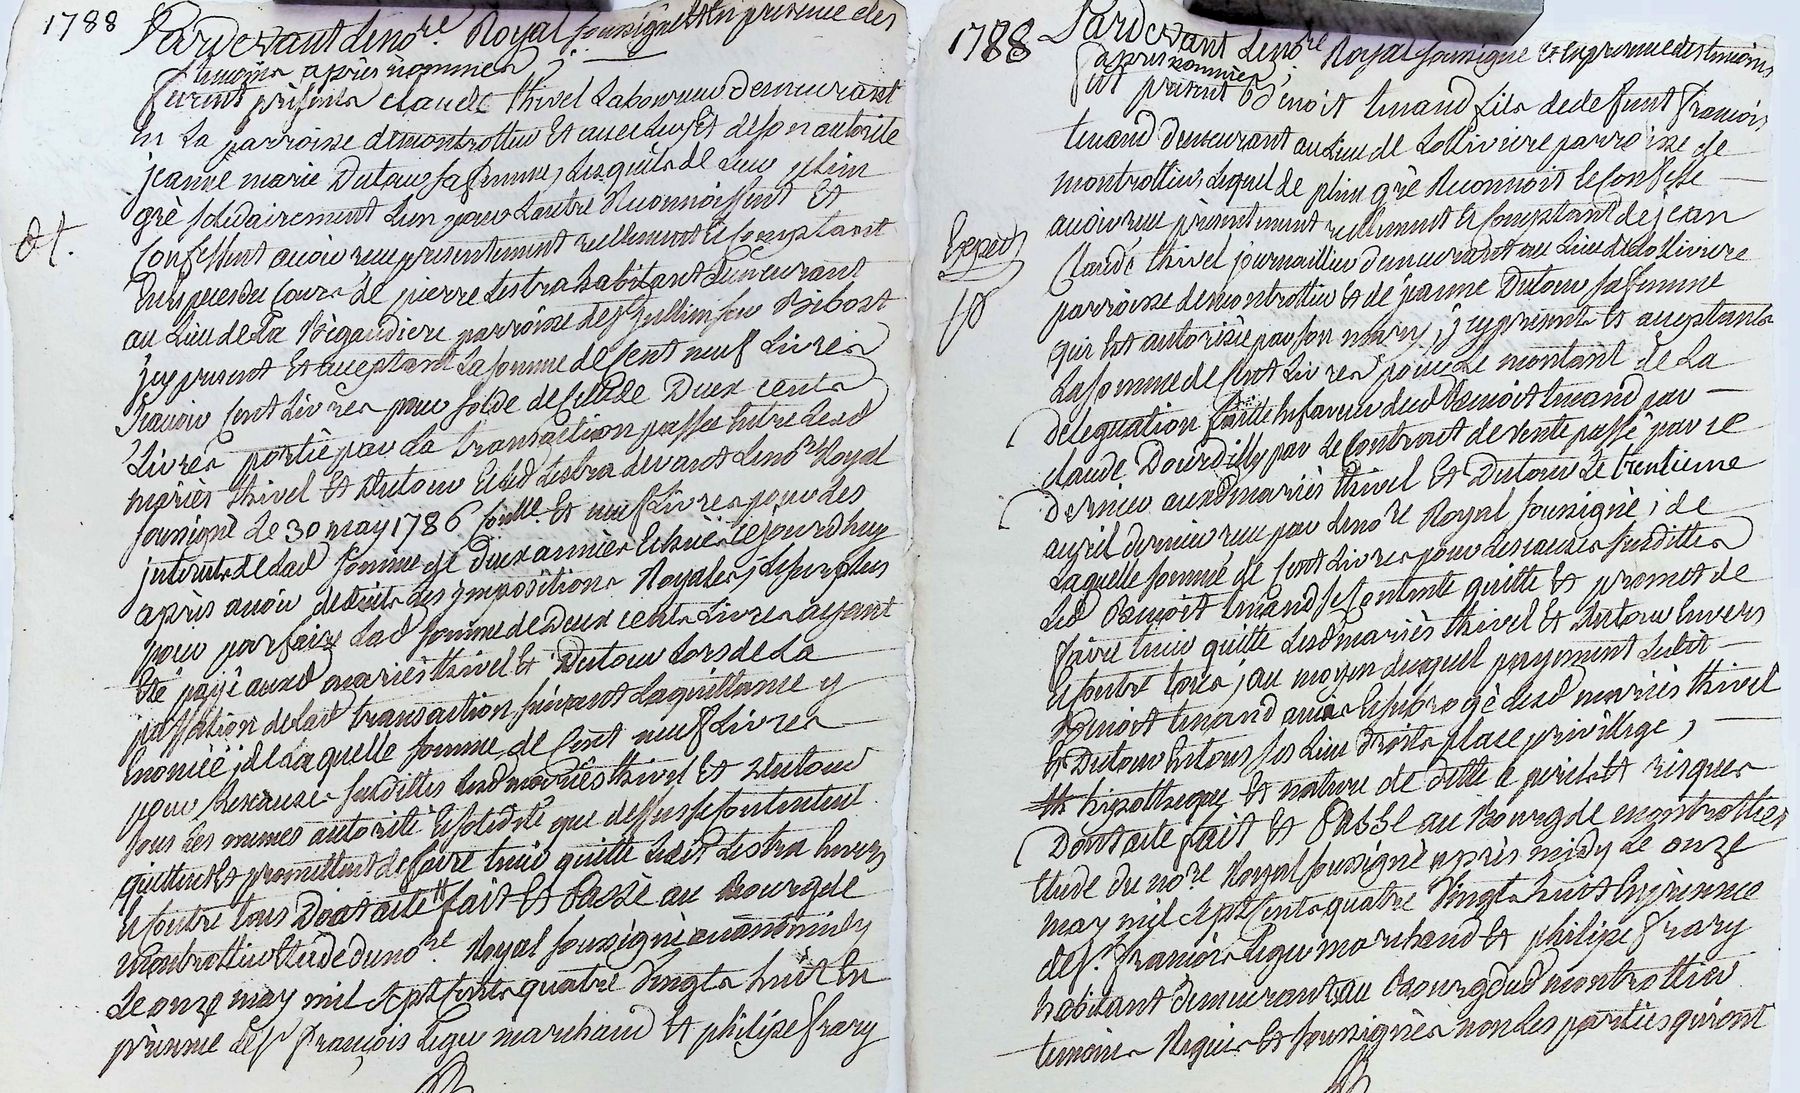 1788 Pardevant le no.re Royal soussigné et en presence des
temoins après nommés
furent présents claude thivel Laboureur demeurant
en La parroisse de montrottier Et avec luy Et de son autorité
jeanne marie Dutour sa femme, Lesquels de Leur plein
gré solidairement L'un pour L'autre Reconnoissent Et
Confessent avoir reçu presentement reellement Et Comptant
Dt.
En especes du Cours de pierre Lestra habitant demeurant
au Lieu de La Bégaudiere parroisse de St jullien sur Bibost
jcy present Et acceptant La somme de Cent neuf Livres
scavoir Cent Livres pour solde de Celle de Deux cents
Livres portée par La transaction passée Entre Lesd
mariés thivel Et Dutour Et led Lestra devant Le no.re Royal
soussigné Le 30 may 1786 Conllé. Et neuf Livres pour Les
jnterets de Lad somme de Deux années Echues Cejourdhuy
après avoir deduit Les jmpositions Royales, Le surplus
pour parfaire Lad somme de Deux cents Livres ayant
Eté payé auxd mariés thivel Et Dutour Lors de La
passation de Lad transaction suivant La quittance y
Enoncée, de Laquelle somme de Cent neuf Livres
pour Les causes susdittes Lesd mariés thivel Et Dutour
sous Les memes autorité Et solidité que dessus se Contentent
quittent Et promettent de faire tenir quitte Ledit Lestra Envers
Et Contre tous Dont acte fait Et Passé au Bourg de
Montrottier Etude du no.re Royal soussigné avant midy
Le onze may mil sept Cents quatre Vingts huit En
présence de s.r François Legu marchand Et philipe frary
1788 Pardevant Le no.re Royal soussigné Et en presence des temoins
après nommés
fut present Benoit tinand fils de defunt François
tinand demeurant au Lieu de Lolliviere parroisse de
montrottier, Lequel de plein gré Reconnoit Et Confesse
avoir reçu presentement reellement Et Comptant de jean
Exped
Claude thivel journaillier demeurant au Lieu de Lollivière
parroisse de montrottier Et de jeanne Dutour sa femme
qui Est autorisée par son mary, jcy presents Et acceptants
La somme de Cent Livres pour Le montant de La
deleguation faitte En faveur dud Benoit tinand par
claude Dourdilly par Le Contract de vente passé par ce
Dernier auxd mariés thivel Et Dutour Le trentieme
avril dernier reçu par Le no.re Royal soussigné, de
Laquelle somme de Cent Livres pour Les causes susdittes
Led Benoit tinand se Contente quitte Et promet de
faire tenir quitte Lesd mariés thivel Et Dutour Envers
Et Contre tous, au moyen duquel payement Ledit
Benoit tinand a mis Et subrogé Lesd mariés thivel
Et Dutour En tous ses Lieu Droits place privillege,
hipotheque Et nature de dette a perils Et risques
Dont acte fait Et Passé au Bourg de montrottier
Etude du no.re Royal soussigné après midy Le onze
may mil sept Cents quatre Vingts huit En présence
de s.r François Legu marchand Et philipe frary
habitant demeurants au Bourg dud montrottier
temoins Requis Et soussignés non Les parties qui ont